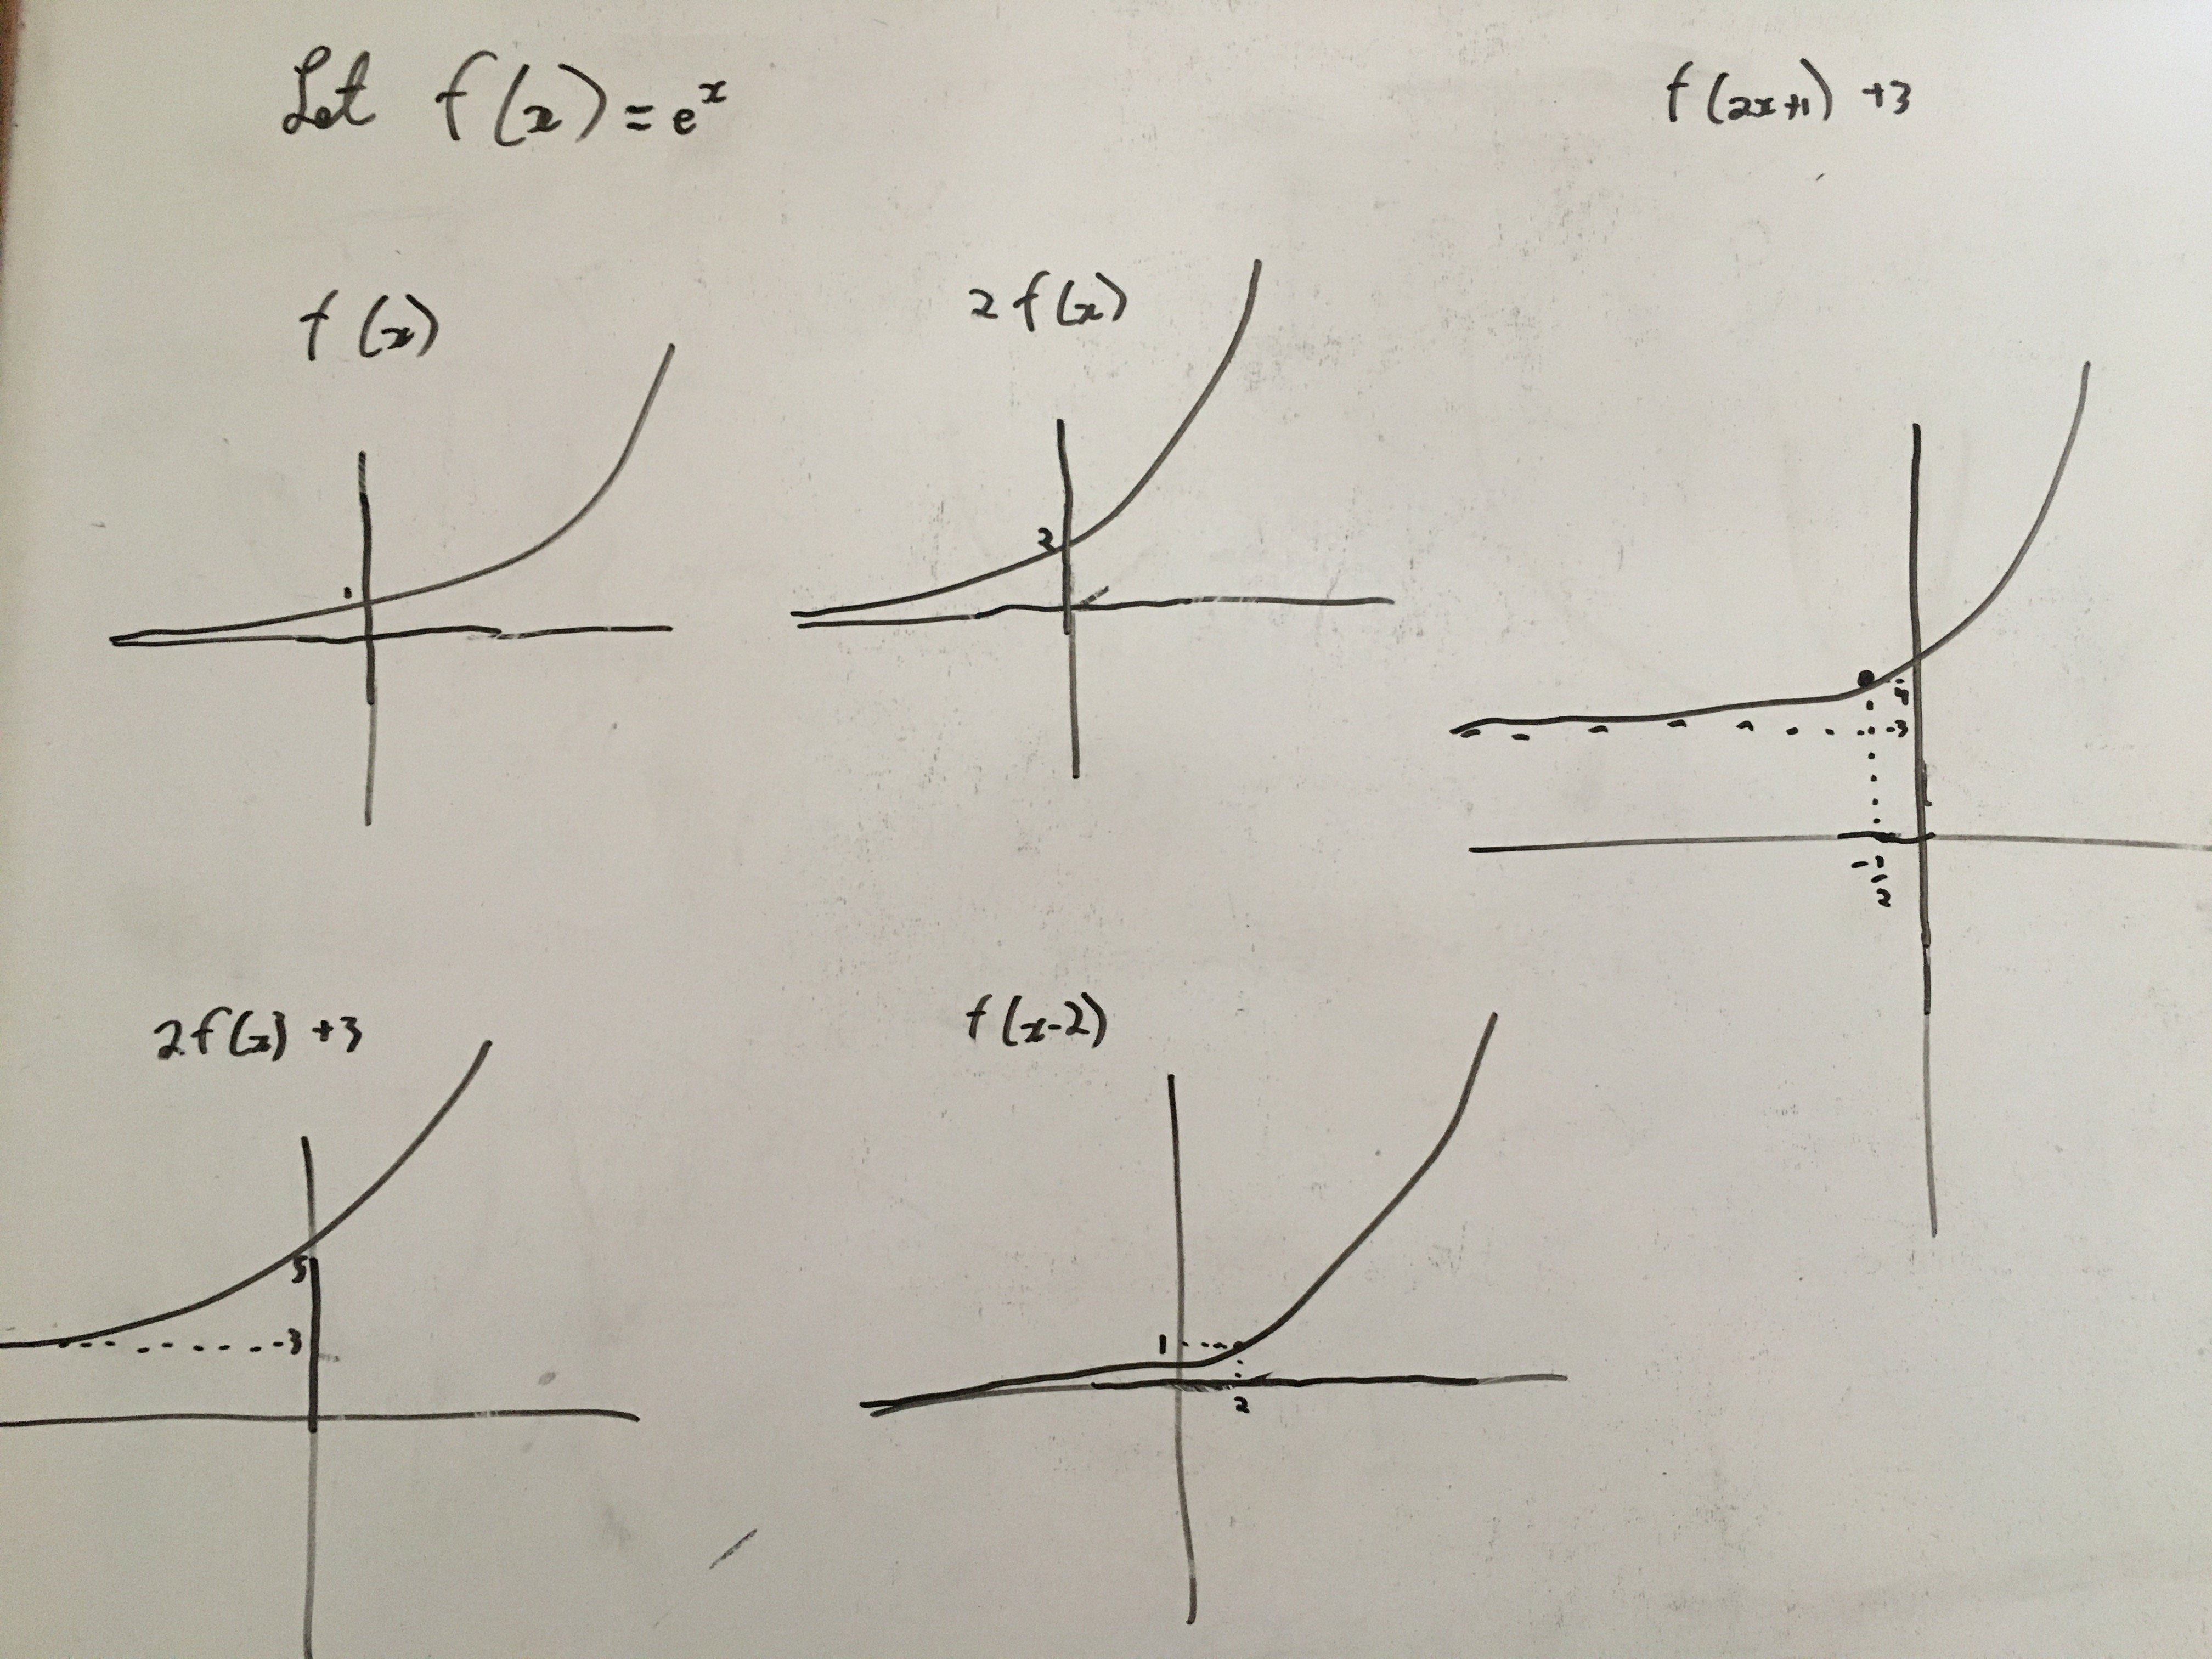 Let f(x) = e^x
f(2x+1) +3
f(x)
1
2 f(x)
2
4
-3
-1/2
2f(x) +3
5
-3
f(x-2)
1
2